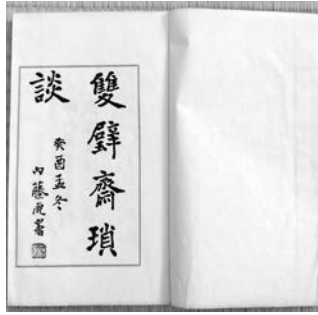 雙璧齋瑣
談
癸酉孟冬
内藤虎署